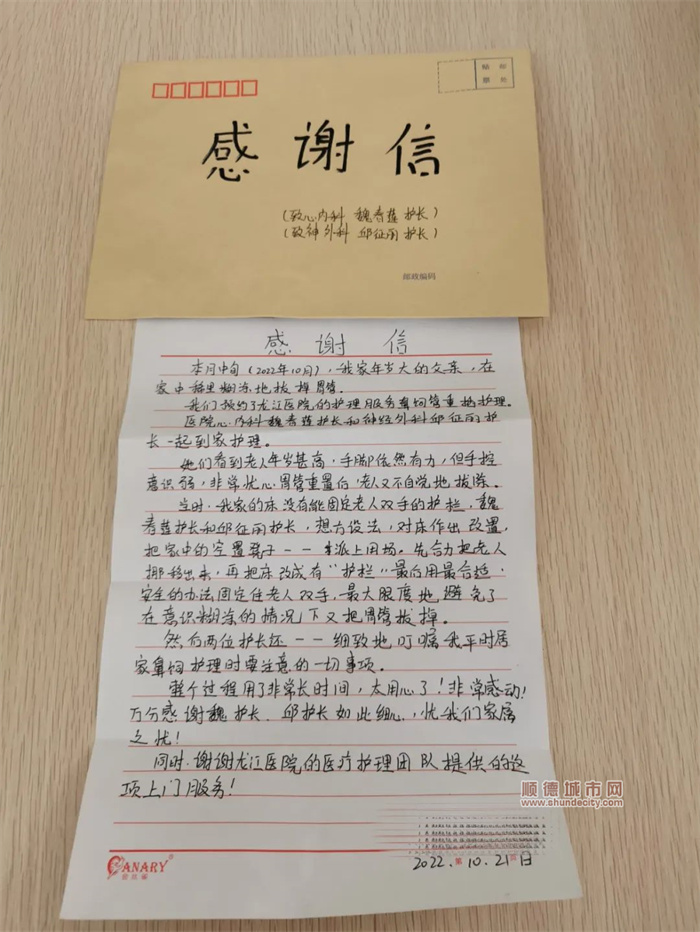 贴 邮
票 处
感谢信
(致心内科 魏春莲护长)
(致神外科 邱征丽护长)
邮政编码
感谢信
本月中旬(2022年10月),我家年岁大的父亲,在
家中稀里糊涂地拔掉胃管。
我们预约了龙江医院的护理服务鼻饲管重插护理。
医院心内科魏春莲护长和神经外科邱征丽护
长一起到家护理。
她们看到老人年岁甚高,手脚依然有力,但手控
意识弱,非常忧心胃管重置后,老人又不自觉地拔除。
当时,我家的床没有能固定老人双手的护栏,魏
春莲护长和邱征丽护长,想方设法,对床作出改置,
把家中的空置凳子一一来派上用场。先合力把老人
挪移出来,再把床改成有“护栏”最后用最合适、
安全的办法固定住老人双手,最大限度地避免了
在意识糊涂的情况下又把胃管拔掉。
然后两位护长还一一细致地叮嘱我平时居
家鼻饲护理时要注意的一切事项。
整个过程用了非常长时间,太用心了!非常感动!
万分感谢魏护长、邱护长如此细心,忧我们家属
之忧!
同时,谢谢龙江医院的医疗护理团队提供的这
项上门服务!
顺德城市网
www.shundecity.com
CANARY®
2022.第10.21页日